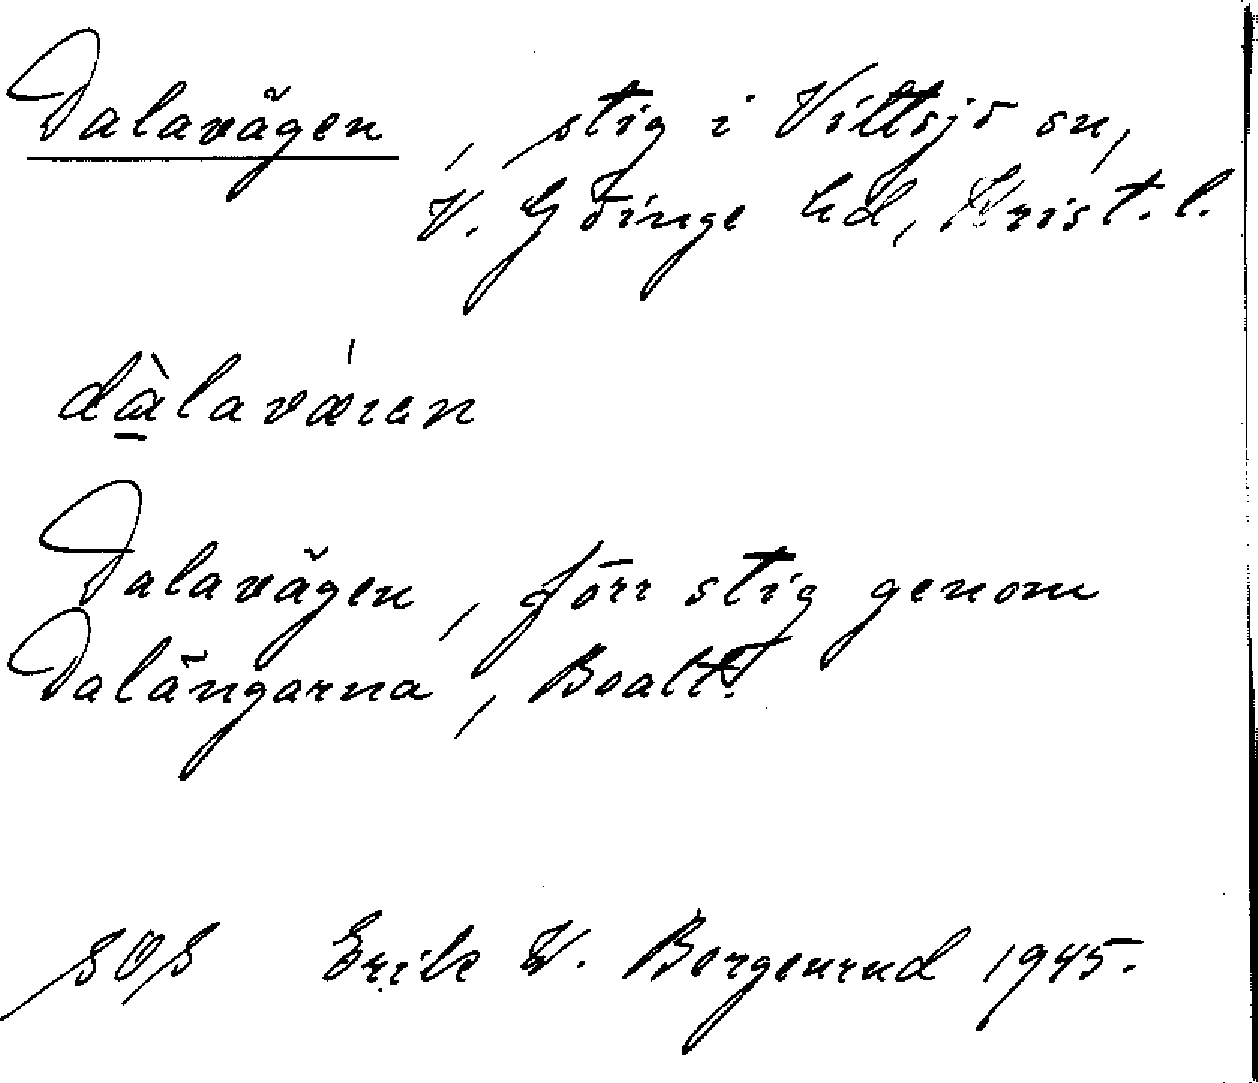 Dalavägen, stig i Vittsjö sn,
V. Göinge hd, Krist. l.
dàlavǽren
Dalavägen, förr stig genom
Dalängarna, Boalt.
SOS Erik W. Bergenrud 1945.